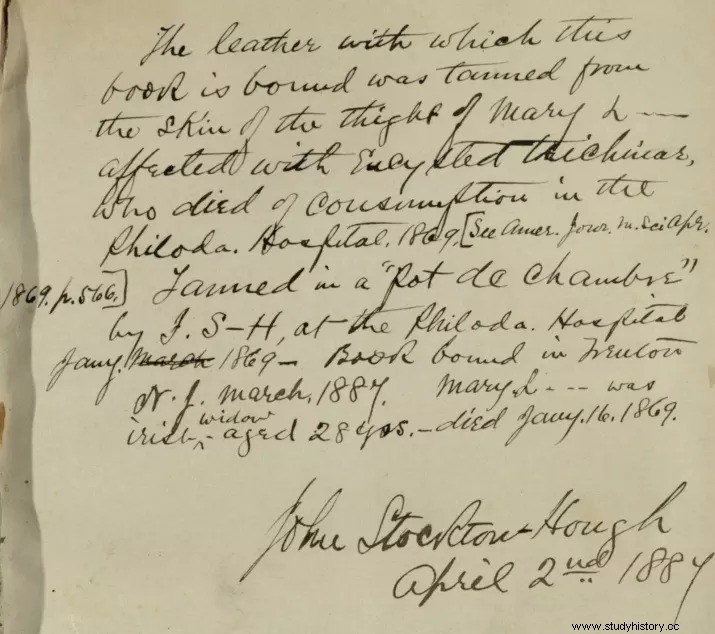 The leather with which this
book is bound was tanned from
the skin of the thigh of Mary L---
affected with Encysted trichinae,
who died of consumption in the
Philada. Hospital. 1869. [See Amer. Jour. M. Sci Apr.
1869. p. 566.] Tanned in a "Pot de Chambre"
by J. S-H, at the Philada. Hospital
Jany. March 1869 - Book bound in Trenton
N. J. March, 1887. Mary L--- was
irish widow - aged 28 yrs. - died Jany. 16. 1869.
John Stockton-Hough
April 2nd 1887
www.studyhistory.cc